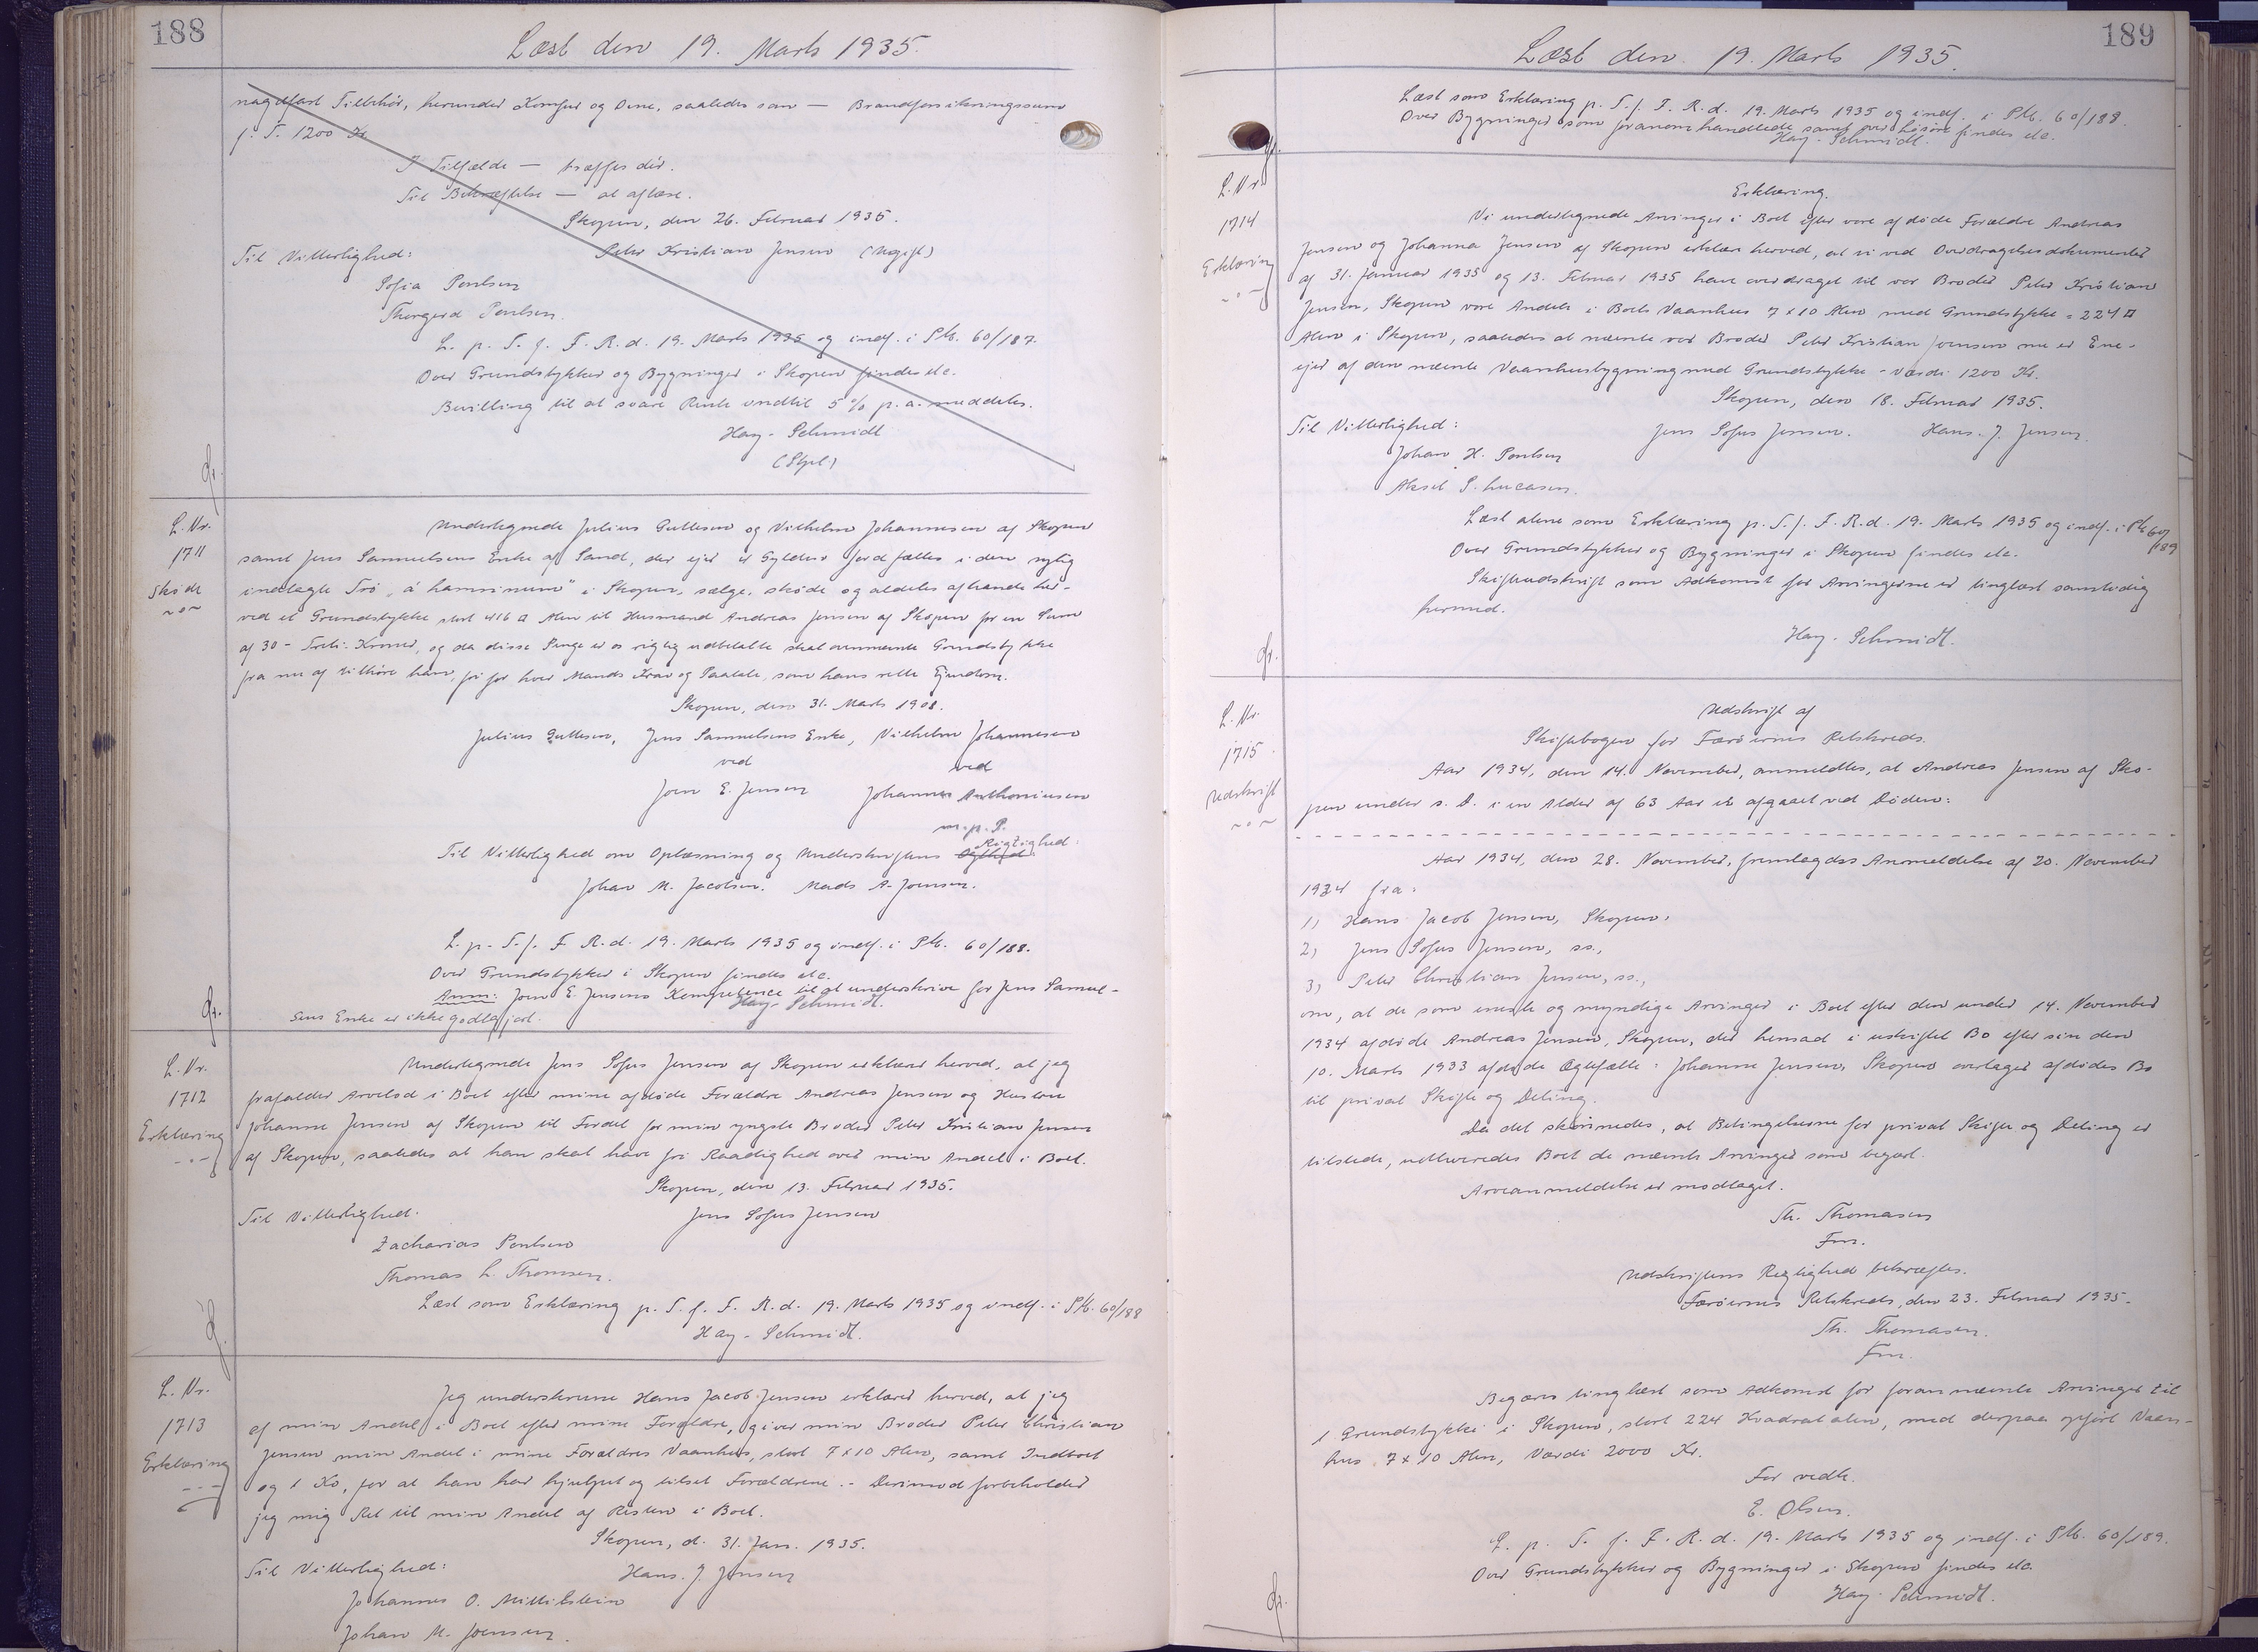 188
Læst den 19. Marts 1935.
nagelfast Tilbehør, herunder Komfur og Ovne, saaledes som — Brandforsikringssum
p. T. 1200 Kr.
I Tilfælde — træffes dér.
Til Bekræftelse — at aflæse.
Skopun, den 26. Februar 1935.
Til Vitterlighed:
Peter Kristian Jensen (Ugift)
Sofia Poulsen
Thorgerd Poulsen.
L. p. T. f. F. R. d. 19. Marts 1935 og indf. i Ptb. 60/187.
Over Grundstykker og Bygninger i Skopun findes etc.
Bevilling til at svare Rente indtil 5 % p. a. meddeles.
Hay-Schmidt
(Stpl.)
L. Nr.
1711
Skøde
Undertegnede Julius Gullesen og Vilhelm Johannesen af Skopun
samt Jens Samuelsens Enke af Sand, der ejer et Gylden Jord fælles i den nylig
indlagte Trø "á hamrinum" i Skopun, sælge, skøde og aldeles afhænde her-
ved et Grundstykke stort 416 □ Alen til Husmand Andreas Jensen af Skopun for en Sum
af 30 - Treti: Kroner, og da disse Penge er os rigtig udbetalte skal ovennævnte Grundstykke
fra nu af tilhøre ham, fri for hver Mands Krav og Paatale, som hans rette Ejendom.
Skopun, den 31. Marts 1908.
Julius Gullesen, Jens Samuelsens Enke, Vilhelm Johannesen
ved ved
Joen E. Jensen Johannes Anthoniusen
m. p. P.
Til Vitterlighed om Oplæsning og Underskriftens Rigtighed:
Johan M. Jacobsen. Mads A. Joensen.
L. p. T. f. F. R. d. 19. Marts 1935 og indf. i Ptb. 60/188.
Over Grundstykker i Skopun findes etc.
Anm: Joen E. Jensens Kompetence til at underskrive for Jens Samuel-
sens Enke er ikke godtgjort.
Hay-Schmidt.
L. Nr.
1712
Erklæring
Undertegnede Jens Sofus Jensen af Skopun erklærer herved, at jeg
frafalder Arvelod i Boet efter mine afdøde Forældre Andreas Jensen og Hustru
Johanne Jensen af Skopun til Fordel for min yngste Broder Peter Kristian Jensen
af Skopun, saaledes at han skal have fri Raadighed over min Andel i Boet.
Skopun, den 13. Februar 1935.
Til Vitterlighed:
Jens Sofus Jensen
Zacharias Poulsen
Thomas L. Thomsen.
Læst som Erklæring p. T. f. F. R. d. 19. Marts 1935 og indf. i Ptb. 60/188
Hay-Schmidt.
L. Nr.
1713
Erklæring
Jeg underskrevne Hans Jacob Jensen erklærer herved, at jeg
af min Andel i Boet efter mine Forældre, giver min Broder Peter Christian
Jensen min Andel i mine Forældres Vaanhus, stort 7 x 10 Alen, samt Indboet
og 1 Ko, for at han har hjulpet og tilset Forældrene. - Derimod forbeholder
jeg mig Ret til min Andel af Resten i Boet.
Skopun, d. 31. Jan. 1935.
Til Vitterlighed:
Hans. J. Jensen
Johannes O. Mittilstein
Johan M. Joensen.
189
Læst den 19. Marts 1935.
Læst som Erklæring p. T. f. F. R. d. 19. Marts 1935 og indf. i Ptb. 60/188.
Over Bygninger som foranomhandlede samt over Løsøre findes etc.
Hay-Schmidt.
L. Nr.
1714
Erklæring
Erklæring.
Vi undertegnede Arvinger i Boet efter vore afdøde Forældre Andreas
Jensen og Johanna Jensen af Skopun erklær herved, at vi ved Overdragelsesdokumenter
af 31. Januar 1935 og 13. Februar 1935 have overdraget til vor Broder Peter Kristian
Jensen, Skopun vore Andele i Boets Vaanhus 7 x 10 Alen med Grundstykke = 224 □
Alen i Skopun, saaledes at nævnte vor Broder Peter Kristian Joensen nu er Ene-
ejer af den nævnte Vaanhusbygning med Grundstykke - Værdi 1200 Kr.
Skopun, den 18. Februar 1935.
Til Vitterlighed:
Jens Sofus Jensen. Hans. J. Jensen.
Johan H. Poulsen
Aksel P. Lucasen.
Læst alene som Erklæring p. T. f. F. R. d. 19. Marts 1935 og indf. i Ptb 60/189
Over Grundstykker og Bygninger i Skopun findes etc.
Skifteudskrift som Adkomst for Arvingerne er tinglæst samtidig
hermed.
Hay-Schmidt.
L. Nr.
1715
Udskrift
Udskrift af
Skiftebogen for Færøernes Retskreds.
Aar 1934, den 14. November, anmeldtes, at Andreas Jensen af Sko-
pun under s. D. i en Alder af 63 Aar er afgaaet ved Døden:
Aar 1934, den 28. November, fremlagdes Anmeldelse af 20. November
1934 fra:
1, Hans Jacob Jensen, Skopun,
2, Jens Sofus Jensen, ss.,
3, Peter Christian Jensen, ss.,
om, at de som eneste og myndige Arvinger i Boet efter den under 14. November
1934 afdøde Andreas Jensen, Skopun, der hensad i uskiftet Bo efter sin den
10. Marts 1933 afdøde Ægtefælle: Johanne Jensen, Skopun overtager afdødes Bo
til privat Skifte og Deling.
Da det skønnedes, at Betingelserne for privat Skifte og Deling er
tilstede, udleveredes Boet de nævnte Arvinger som begært.
Arveanmeldelse er modtaget.
Th. Thomasen
Fm.
Udskriftens Rigtighed bekræftes.
Færøernes Retskreds, den 23. Februar 1935.
Th. Thomasen.
Fm.
Begæres tinglæst som Adkomst for forannævnte Arvinger til
1 Grundstykke i Skopun, stort 224 Kvadratalen, med derpaa opført Vaan-
hus 7 x 10 Alen, Værdi 2000 Kr.
For vedk.
E. Olsen.
L. p. T. f. F. R. d. 19. Marts 1935 og indf. i Ptb. 60/189.
Over Grundstykker og Bygninger i Skopun findes etc.
Hay-Schmidt.